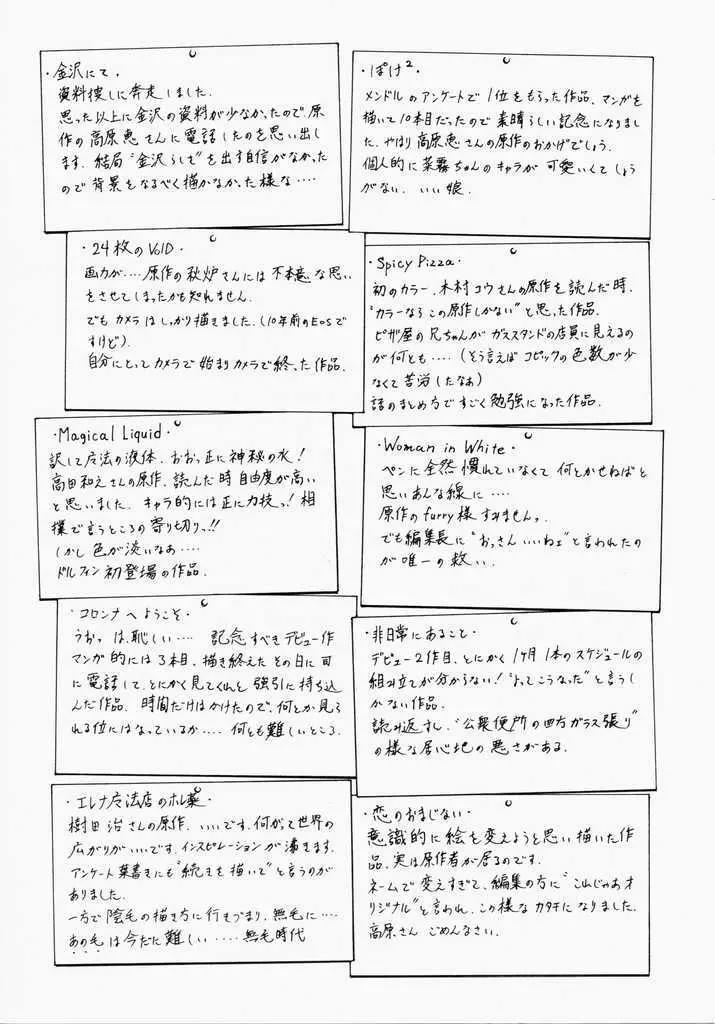 ・金沢にて・
資料捜しに奔走しました.
思った以上に金沢の資料が少なかったので、原
作の高原恵さんに電話したのを思い出し
ます. 結局“金沢らしさ”を出す自信がなかった
ので背景をなるべく描かなかった様な‥‥
・ぽけ²・
メンドルのアンケートで1位をもらった作品、マンガを
描いて10本目だったので素晴らしい記念になりまし
た. やはり高原恵さんの原作のおかげでしょう.
個人的に菜霧ちゃんのキャラが可愛いくてしょう
がない. いい娘.
・24枚のVOID・
画力が‥‥原作の秋炉さんには不本意な思い
をさせてしまったかも知れません.
でもカメラはしっかり描きました.(10年前のEOSで
すけど).
自分にとってカメラで始まりカメラで終った作品.
・Spicy Pizza・
初のカラー. 木村コウさんの原作を読んだ時.
“カラーならこの原作しかない”と思った作品.
ピザ屋の兄ちゃんがガススタンドの店員に見えるの
が何とも‥‥(そう言えばコピックの色数が少
なくて苦労したなぁ)
話のまとめ方ですごく勉強になった作品.
・Magical Liquid・
訳して魔法の液体. おおっ正に神秘の水!
高田和えさんの原作. 読んだ時自由度が高い
と思いました. キャラ的には正に力技っ! 相
撲で言うところの寄り切りっ!!
しかし色が淡いなぁ‥‥
ドルフィン初登場の作品.
・Woman in White・
ペンに全然慣れていなくて何とかせねばと
思いあんな線に‥‥
原作のfurry様すみませんっ.
でも編集長に“おっさんいいねェ”と言われたの
が唯一の救い.
・コロンナへようこそ・
うおっ は、恥しい‥‥ 記念すべきデビュー作
マンガ的には3本目. 描き終えたその日に司
に電話して、とにかく見てくれと強引に持ち込
んだ作品. 時間だけはかけたので、何とか見ら
れる位にはなっているか‥‥何とも難しいところ.
・非日常にあること・
デビュー2作目. とにかく1ヶ月1本のスケジュールの
組み立てが分からない!“よってこうなった”と言うし
かない作品.
読み返すし、“公衆便所の四方ガラス張り”
の様な居心地の悪さがある.
・エレナ魔法店のホレ薬・
樹田治さんの原作. いいです. 何がって世界の
広がりがいいです. インスピレーションが湧きます.
アンケート葉書きにも“続きを描いて”と言うのが
ありました.
一方で陰毛の描き方に行きづまり、無毛に‥‥
あの毛は今だに難しい‥‥無毛時代
・恋のおまじない・
意識的に絵を変えようと思い描いた作
品. 実は原作者が居るのです.
ネームで変えすぎて、編集の方に“これじゃぁオ
リジナル”と言われ、この様なカタチになりました.
高原さん ごめんなさい.